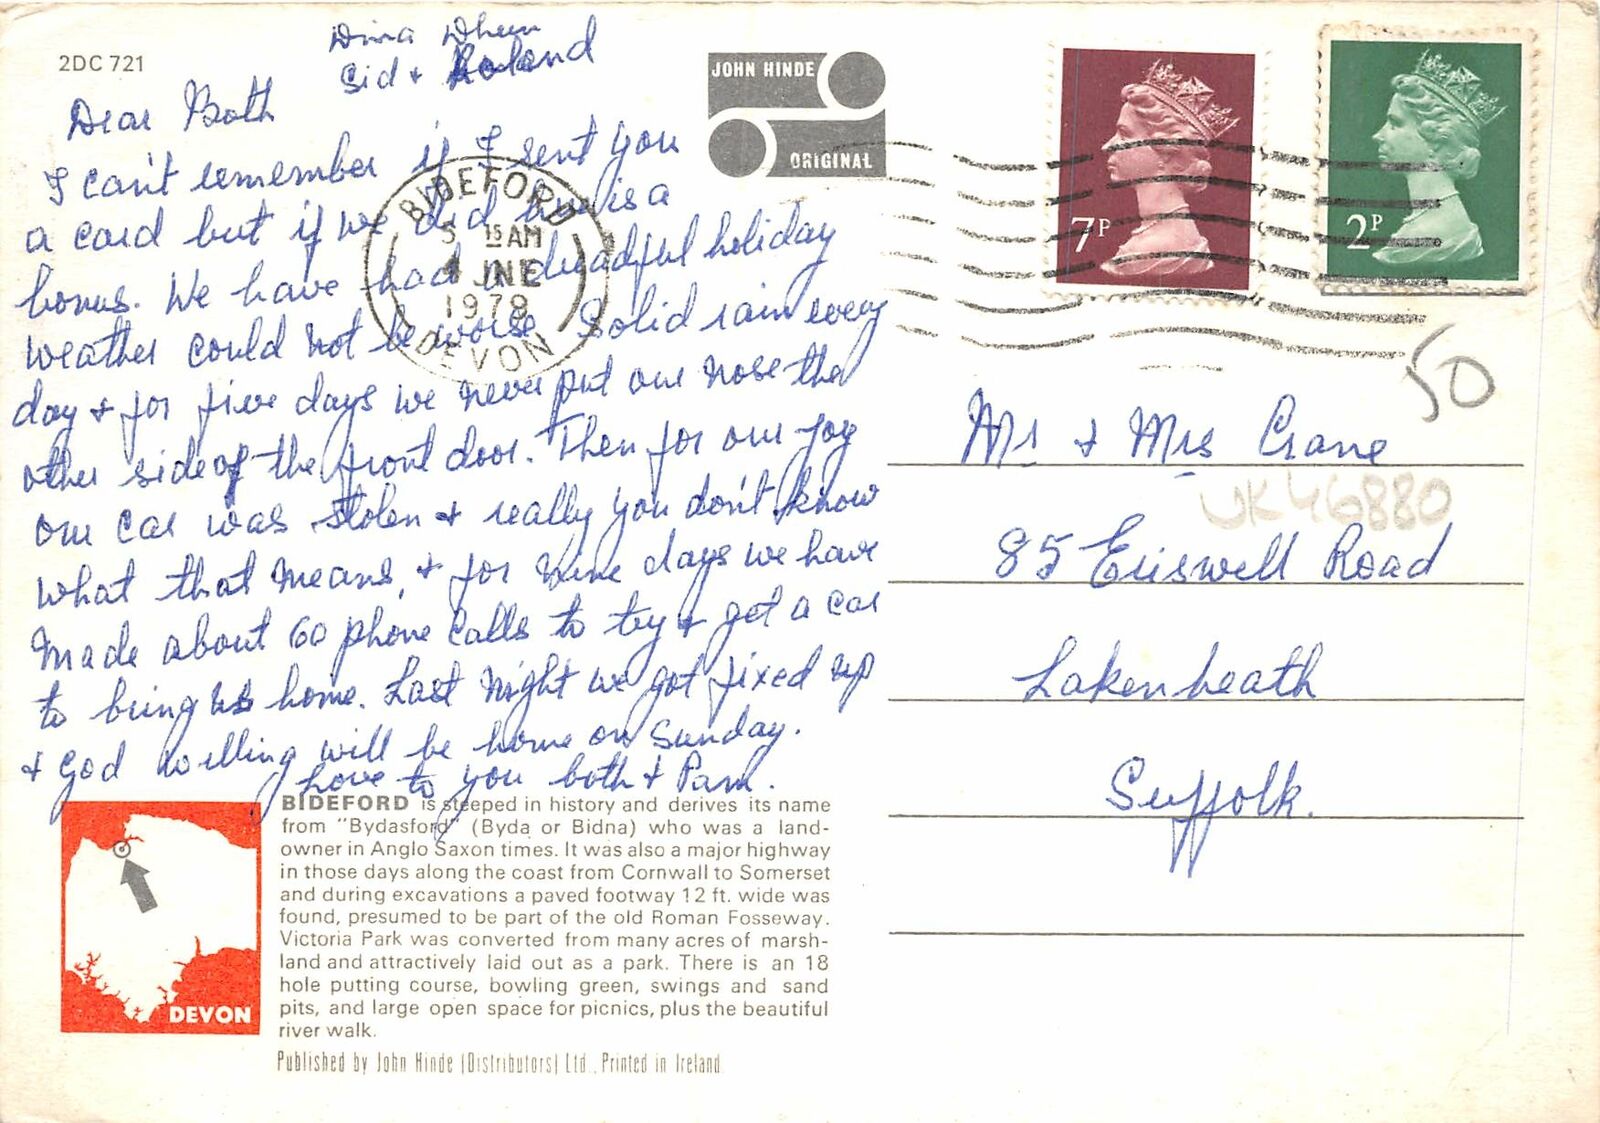 2DC 721
Sid + Roland
Dear Both
I can't remember if I sent you
a card but if we did here is a
bonus. We have had a dreadful holiday
weather could not be worse Solid rain every
day + for five days we never put our nose the
other side of the front door. Then for our joy
our car was stolen + really you don't know
what that means, + for nine days we have
made about 60 phone calls to try + get a car
to bring us home. Last night we got fixed up
+ God willing will be home on Sunday.
Love to you both + Pam.
JOHN HINDE
ORIGINAL
BIDEFORD
5 15 AM
JNE
1979
DEVON
7P
2P
50
Mr + Mrs Crane
UK46880
85 Eriswell Road
Lakenheath
Suffolk.
BIDEFORD is steeped in history and derives its name
from "Bydasford" (Byda or Bidna) who was a land-
owner in Anglo Saxon times. It was also a major highway
in those days along the coast from Cornwall to Somerset
and during excavations a paved footway 12 ft. wide was
found, presumed to be part of the old Roman Fosseway.
Victoria Park was converted from many acres of marsh-
land and attractively laid out as a park. There is an 18
hole putting course, bowling green, swings and sand
pits, and large open space for picnics, plus the beautiful
river walk.
DEVON
Published by John Hinde (Distributors) Ltd., Printed in Ireland.